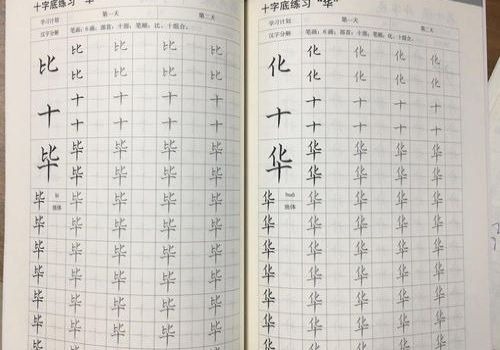 十字底练习 "毕"
学习计划 第一天 第二天
汉字分解 笔画:6画;部首:十部;笔顺:比、十组合。
比 比 比 比 比
比 比 比 比
十 十 十 十 十
十 十 十 十
毕 毕 毕 毕 毕
毕 毕 毕 毕
毕 毕 毕 毕 毕
毕 毕 毕 毕 毕
毕 毕 毕 毕 毕
毕 毕 毕 毕 毕
毕 毕 毕 毕 毕
毕 毕 毕 毕 毕
毕 毕 毕 毕 毕
十字底练习 "华"
学习计划 第一天 第二天
汉字分解 笔画:6画;部首:十部;笔顺:化、十组合。
化 化 化 化 化
化 化 化 化
十 十 十 十 十
十 十 十 十
华 华 华 华 华
华 华 华 华
华 huá 华 华 华 华
华 华 华 华 华
华 华 华 华 华
华 华 华 华 华
华 华 华 华 华
华 华 华 华 华
华 华 华 华 华